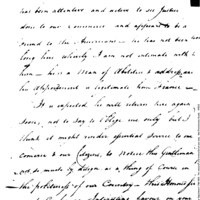 has been attentive and active to see Justice
done to our Commerce and appears to be a
friend to the Americans — he has not been
long here whereby I am not intimate with
him — he is a Man of Abilities & address, an
his appointment is legitimate from France —
It is expected he will return here again
soon, not to say to oblige me only but I
think it might render essential Service to our
Concerns & our Citizens, to notice this Gentleman
not so much by design as a thing of Course in
the politeness of our Country — this Honours for